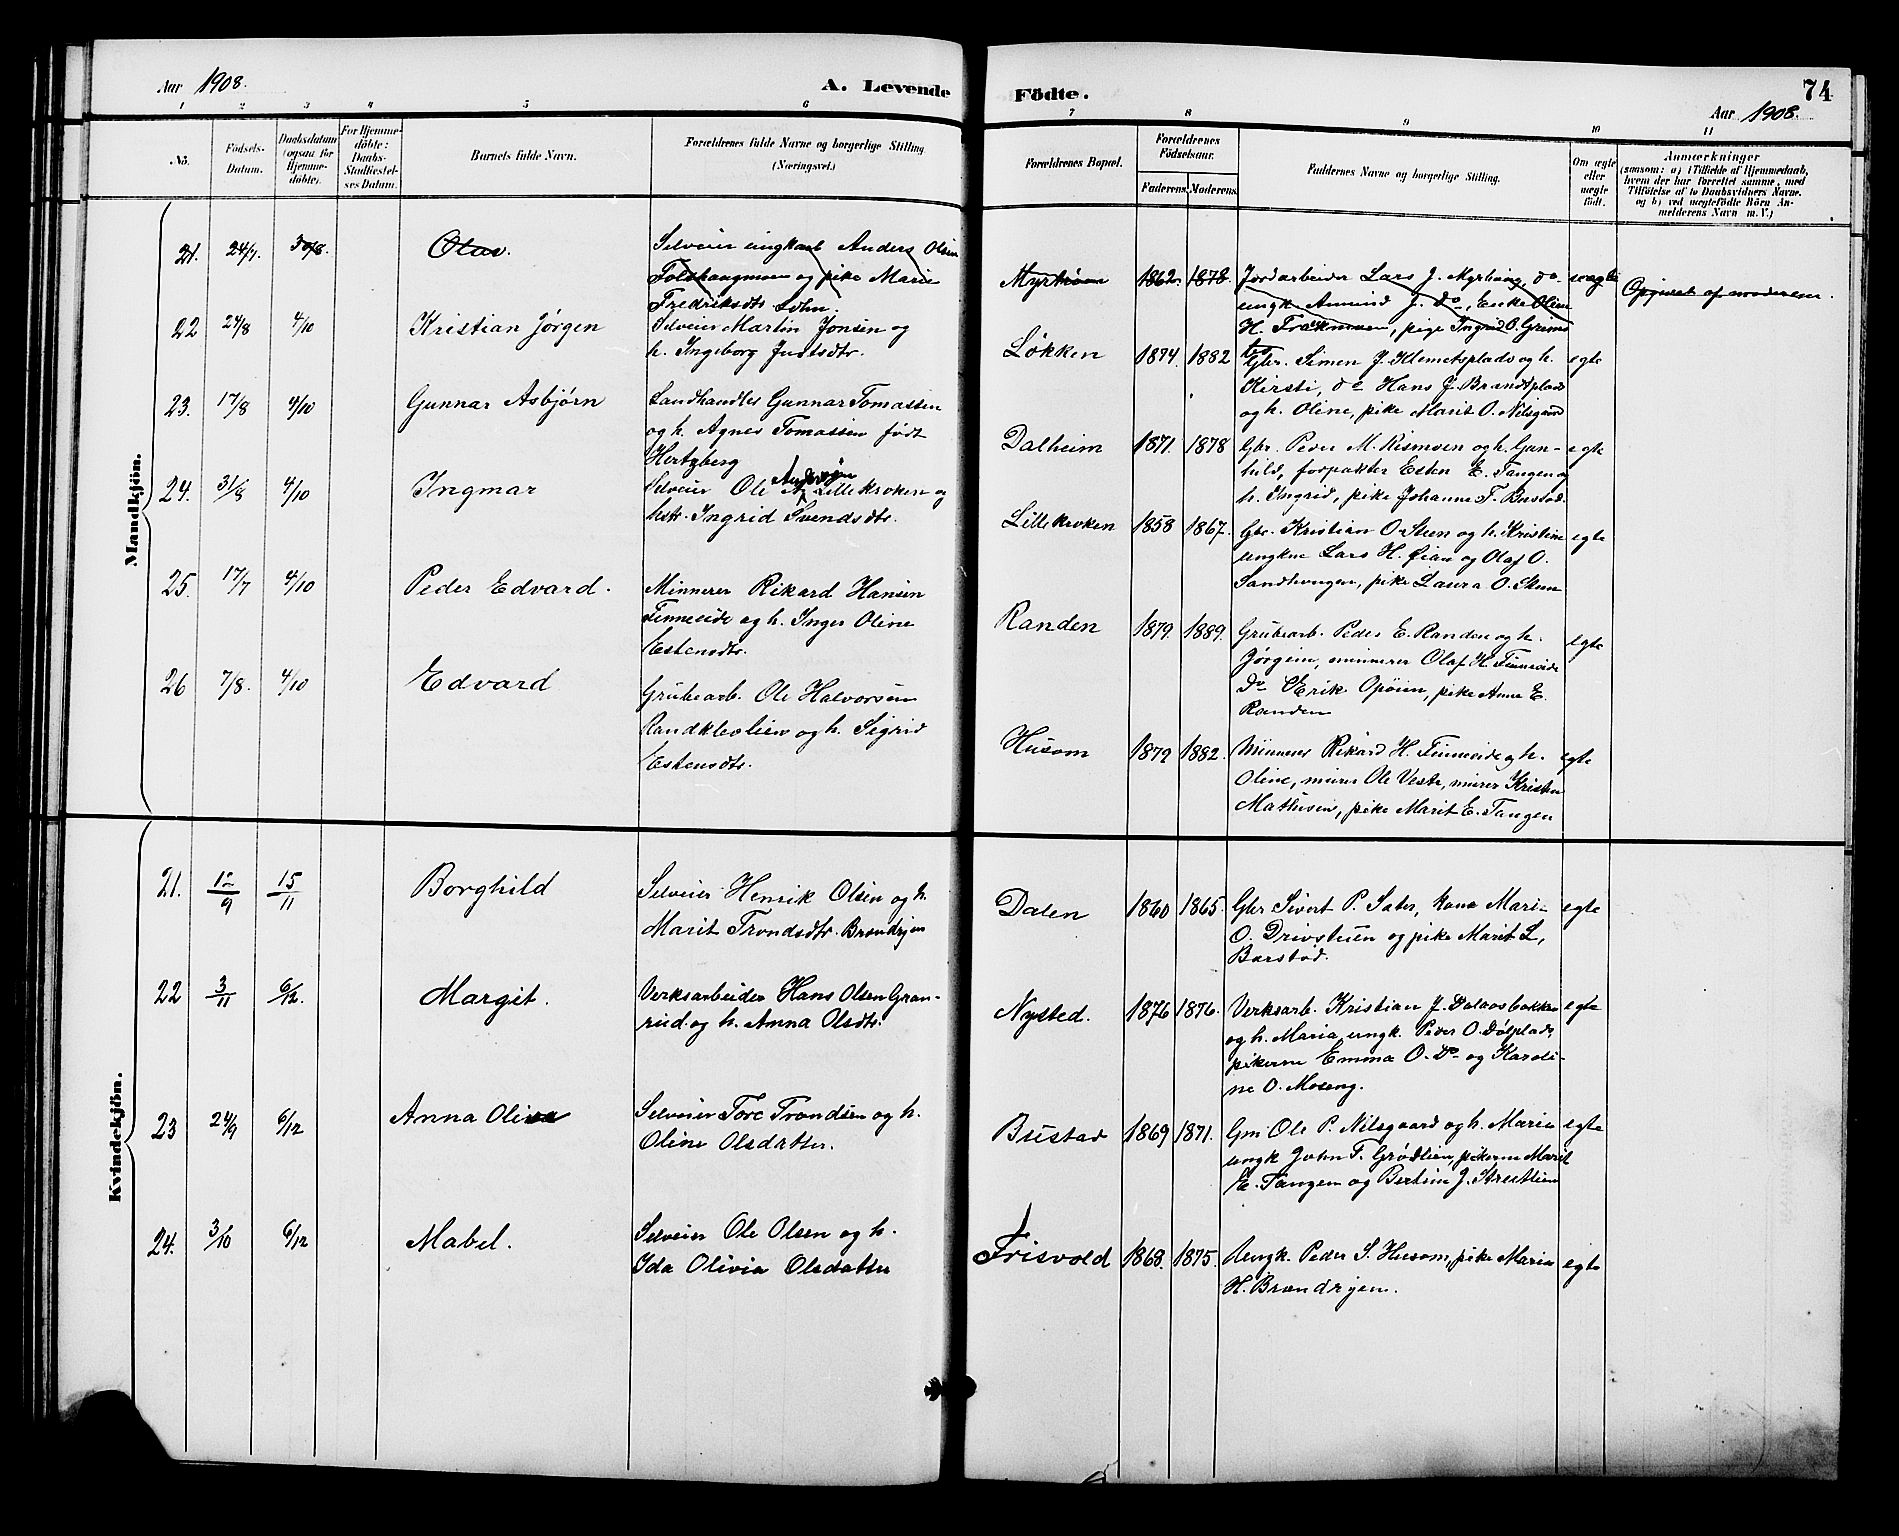 Aar 1908.
A. Levende Födte.
74
Aar 1908.
1 2 3 4 5 6 7 8 9 10 11
No.
Födsels-Datum.
Daabsdatum (ogsaa for Hjemmedöbte).
For Hjemmedöbte: Daabs-Stadfæstelses Datum.
Barnets fulde Navn.
Forældrenes fulde Navne og borgerlige Stilling (Næringsvei.)
Forældrenes Bopæl.
Forældrenes Födselsaar.
Faderens. Moderens.
Faddernes Navne og borgerlige Stilling.
Om ægte eller uægte födt.
Anmærkninger
(saasom: a) i Tilfælde af Hjemmedaab,
hvem der har forrettet samme, med
Tilföielse af to Daabsvidners Navne.
og b) ved uægtefödte Börn An-
melderens Navn m. V.)
Mandkjön.
21. 24/7. 30/8. Olav.
Selveier ungkarl Anders Olsen
og pike Marie
Fredriksdtr. Løhn.
1862. 1878.
Jordarbeider Lars J. Myrhaug, do
ungk. Amund J. do, Enke Oline
H. pige Ingrid O.
uægte
Opgivet af moderen.
22 24/8 4/10 Kristian Jørgen
Selveier Martin Jonsen og
h. Ingeborg Justsdtr.
Løkken 1874. 1882
Gbr. Simen J. Klemetsplads og h.
Kirsti, do Hans J. Brandtplads
og h. Oline, pike Marit O. Nilsgård
egte
23. 17/8 4/10 Gunnar Asbjørn
Landhandler Gunnar Tomassen
og h. Agnes Tomassen født
Hertzberg
Dalheim 1871. 1878
Gbr. Peder M. Rismoen og h. Gun-
hild, forpakter Esten E. Tangen og
h. Ingrid, pike Johanne T. Bustad.
egte
24. 31/8 4/10 Ingmar
Selveier Ole Lillekroken og
hstr. Ingrid Svendsdtr.
Lillekroken 1858 1867.
Gbr. Kristian O. Steen og h. Kristine
ungkne Lars H. Øian og Olaf O.
pike Laura O. Steen
egte
25. 17/7 4/10 Peder Edvard.
Minerer Rikard Hansen
Finneeide og h. Inger Oline
Estensdtr.
Randen 1879. 1889.
Grubearb. Peder E. Randen og h.
Jørgine, minerer Olaf H. Finneeide
do Erik Opøien, pike Anne E.
Randen
egte
26 7/8. 4/10 Edvard
Grubearb. Ole Halvorsen
Randkleolien og h. Sigrid
Estensdtr.
Husom 1879 1882.
Minerer Rikard H. Finneeide og h.
Oline, murer Ole Veste, murer Kristen
Mathisen, pike Marit E. Tangen
egte
Kvindekjön.
21. 12/9 15/11 Borghild
Selveier Henrik Olsen og h.
Marit Trondsdtr. Brændryen
Dalen 1860 1865.
Gbr Sivert P. Sater, kone Mari
O. Drivstuen og pike Marit L.
Barstad.
egte
22 3/11 6/12. Margit.
Verksarbeider Hans Olsen Gran-
rud og h. Anna Olsdtr.
Nysted. 1876 1876.
Verksarb. Kristian J. Dalaasbakken
og h. Maria, ungk. Peder O. Dølplads,
pikerne Emma O. Do og Karoli-
ne O. Moseng.
egte
23 24/9 6/12 Anna Olive
Selveier Tore Trondsen og h.
Oline Olsdatter.
Bustad 1869 1871.
Gm Ole P. Nilsgaard og h. Maria
ungk John T. Grødlien, pikerne Marit
E. Tangen og Bertine J. Strætlien
egte
24. 3/10 6/12 Mabel.
Selveier Ole Olsen og h.
Ida Olivia Olsdatter
Frisvold 1868. 1875.
Ungk. Peder S. Husom, pike Marie
H. Brændryen.
egte